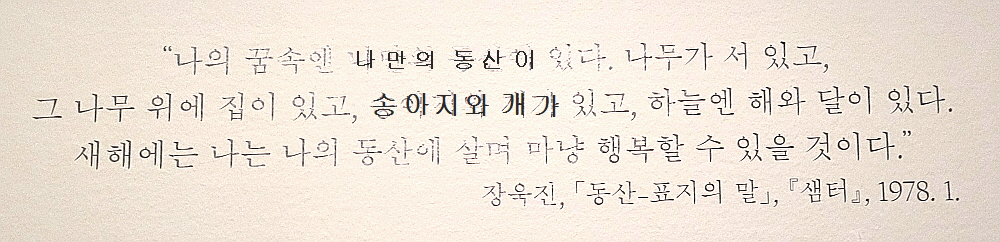 “나의 꿈속엔 나만의 동산이 있다. 나무가 서 있고,
그 나무 위에 집이 있고, 송아지와 개가 있고, 하늘엔 해와 달이 있다.
새해에는 나는 나의 동산에 살며 마냥 행복할 수 있을 것이다.”
장욱진, 「동산-표지의 말」, 『샘터』, 1978. 1.